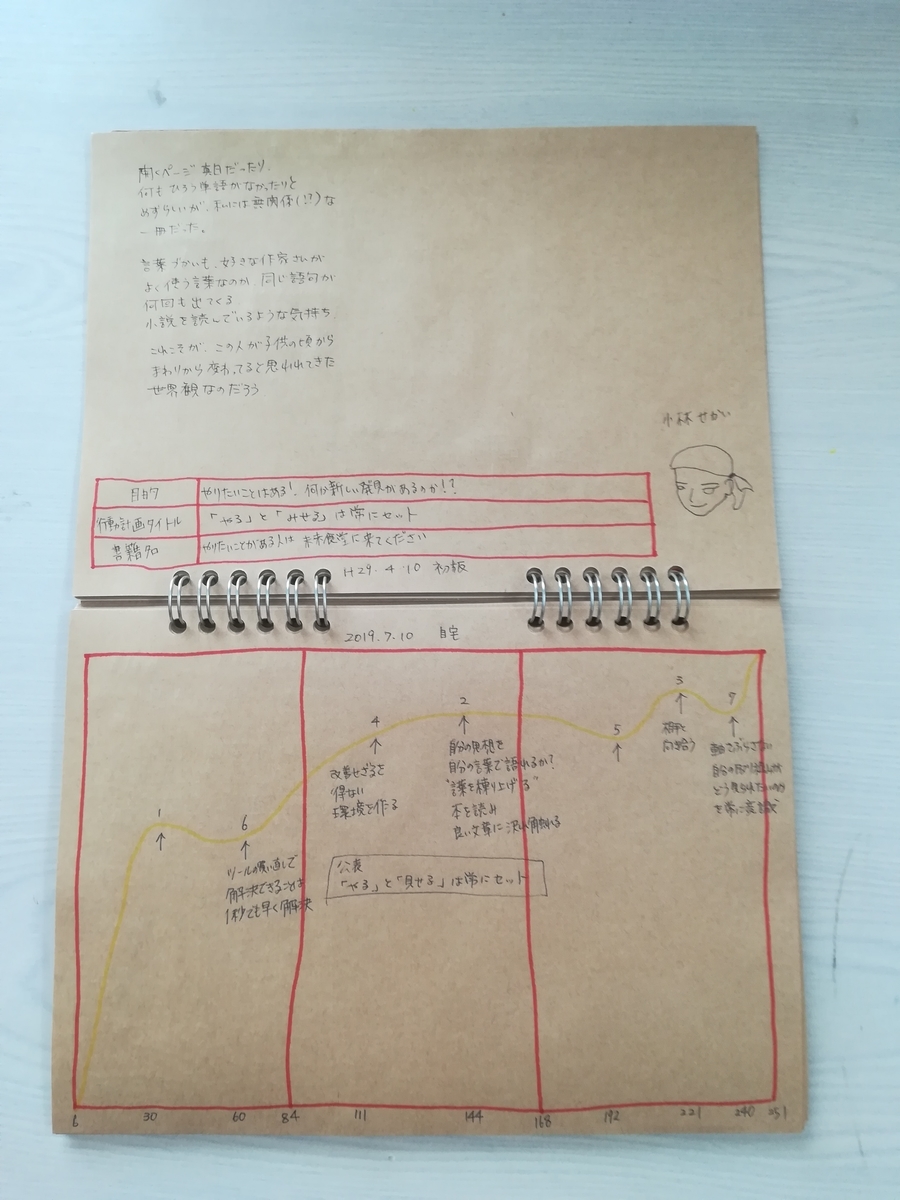 開くページ真白だったり、
何もひろう単語がなかったりと
めずらしいが、私には無関係(!?)な
一冊だった。
言葉づかいも、好きな作家さんが
よく使う言葉なのか、同じ語句が
何回も出てくる
小説を読んでいるような気持ち
これこそが、この人が子供の頃から
まわりから変わってると思われてきた
世界観なのだろう
小林せかい
目的 やりたいことはある!、何か新しい発見があるのか!?
行動計画タイトル 「やる」と「みせる」は常にセット
書籍名 やりたいことがある人は 未来食堂に来てください
H29.4.10 初版
2019.7.10 自宅
1
6
ツールの買い直しで
解決できることは
1秒でも早く解決
4
改善せざるを
得ない
環境を作る
2
自分の思想を
自分の言葉で語れるか?
"言葉を練り上げる"
本を読み
良い文章に沢山触れる
公表
「やる」と「見せる」は常にセット
5
3
向き合う
7
軸をぶらさない
どう見られたいのか
を常に意識
6 30 60 84 111 144 168 192 221 240 251